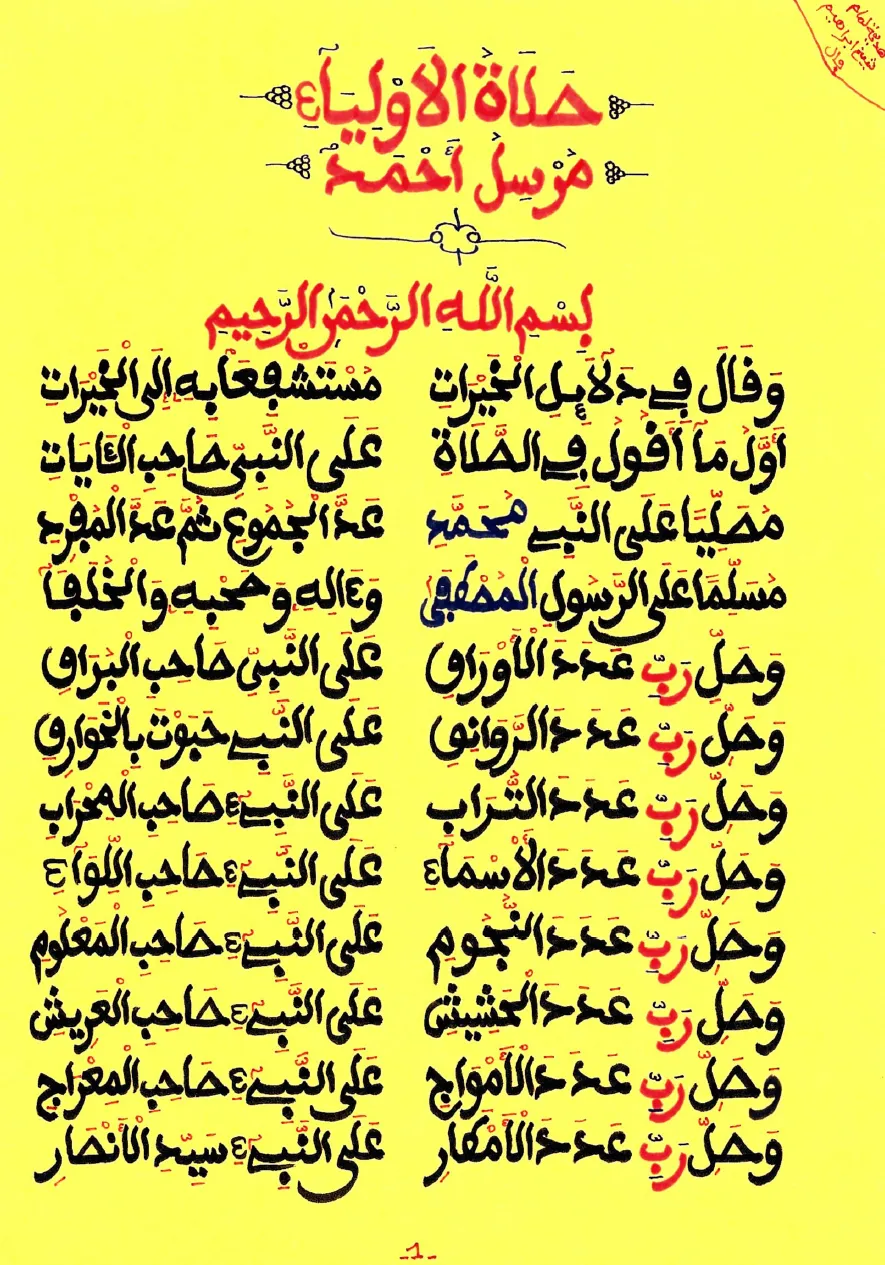 هدية لمام
شيخ ابراهيم
فال
صَلَاةُ الَاوْلِيَآءِ
مُرْسِلُ أَحْمَدٌ
بِسْمِ اللَّهِ الرَّحْمَٰنِ الرَّحِيمِ
وَقَالَ فِي دَلَآئِلِ الْخَيْرَاتِ مُسْتَشْفِعًا بِهِ إِلَى الْخَيْرَاتِ
أَوَّلُ مَآ أَقُولُ فِي الصَّلَاةِ عَلَى النَّبِيِّ صَاحِبِ الْآيَاتِ
مُصَلِّيًا عَلَى النَّبِي مُحَمَّدِ عَدَّ الْجُمُوعِ ثُمَّ عَدَّ الْمُفْرَدِ
مُسَلِّمًا عَلَى الرَّسُولِ الْمُصْطَفَى وَءَالِهِ وَصَحْبِهِ وَالْخُلَفَآ
وَصَلِّ رَبِّ عَدَدَ الْأَوْرَاقِ عَلَى النَّبِيِّ صَاحِبِ الْبُرَاقِ
وَصَلِّ رَبِّ عَدَدَ الرَّوَانِقِ عَلَى النَّبِي حَبَوْتَ بِالْخَوَارِقِ
وَصَلِّ رَبِّ عَدَدَ التُّرَابِ عَلَى النَّبِيءِ صَاحِبِ الْمِحْرَابِ
وَصَلِّ رَبِّ عَدَدَ الْأَسْمَآءِ عَلَى النَّبِيءِ صَاحِبِ اللِّوَآءِ
وَصَلِّ رَبِّ عَدَدَ النُّجُومِ عَلَى النَّبِيءِ صَاحِبِ الْمَعْلُومِ
وَصَلِّ رَبِّ عَدَدَ الْحَشِيشِ عَلَى النَّبِيءِ صَاحِبِ الْعَرِيشِ
وَصَلِّ رَبِّ عَدَدَ الْأَمْوَاجِ عَلَى النَّبِيءِ صَاحِبِ الْمِعْرَاجِ
وَصَلِّ رَبِّ عَدَدَ الْأَمْطَارِ عَلَى النَّبِيءِ سَيِّدِ الْأَنْصَارِ
-1-